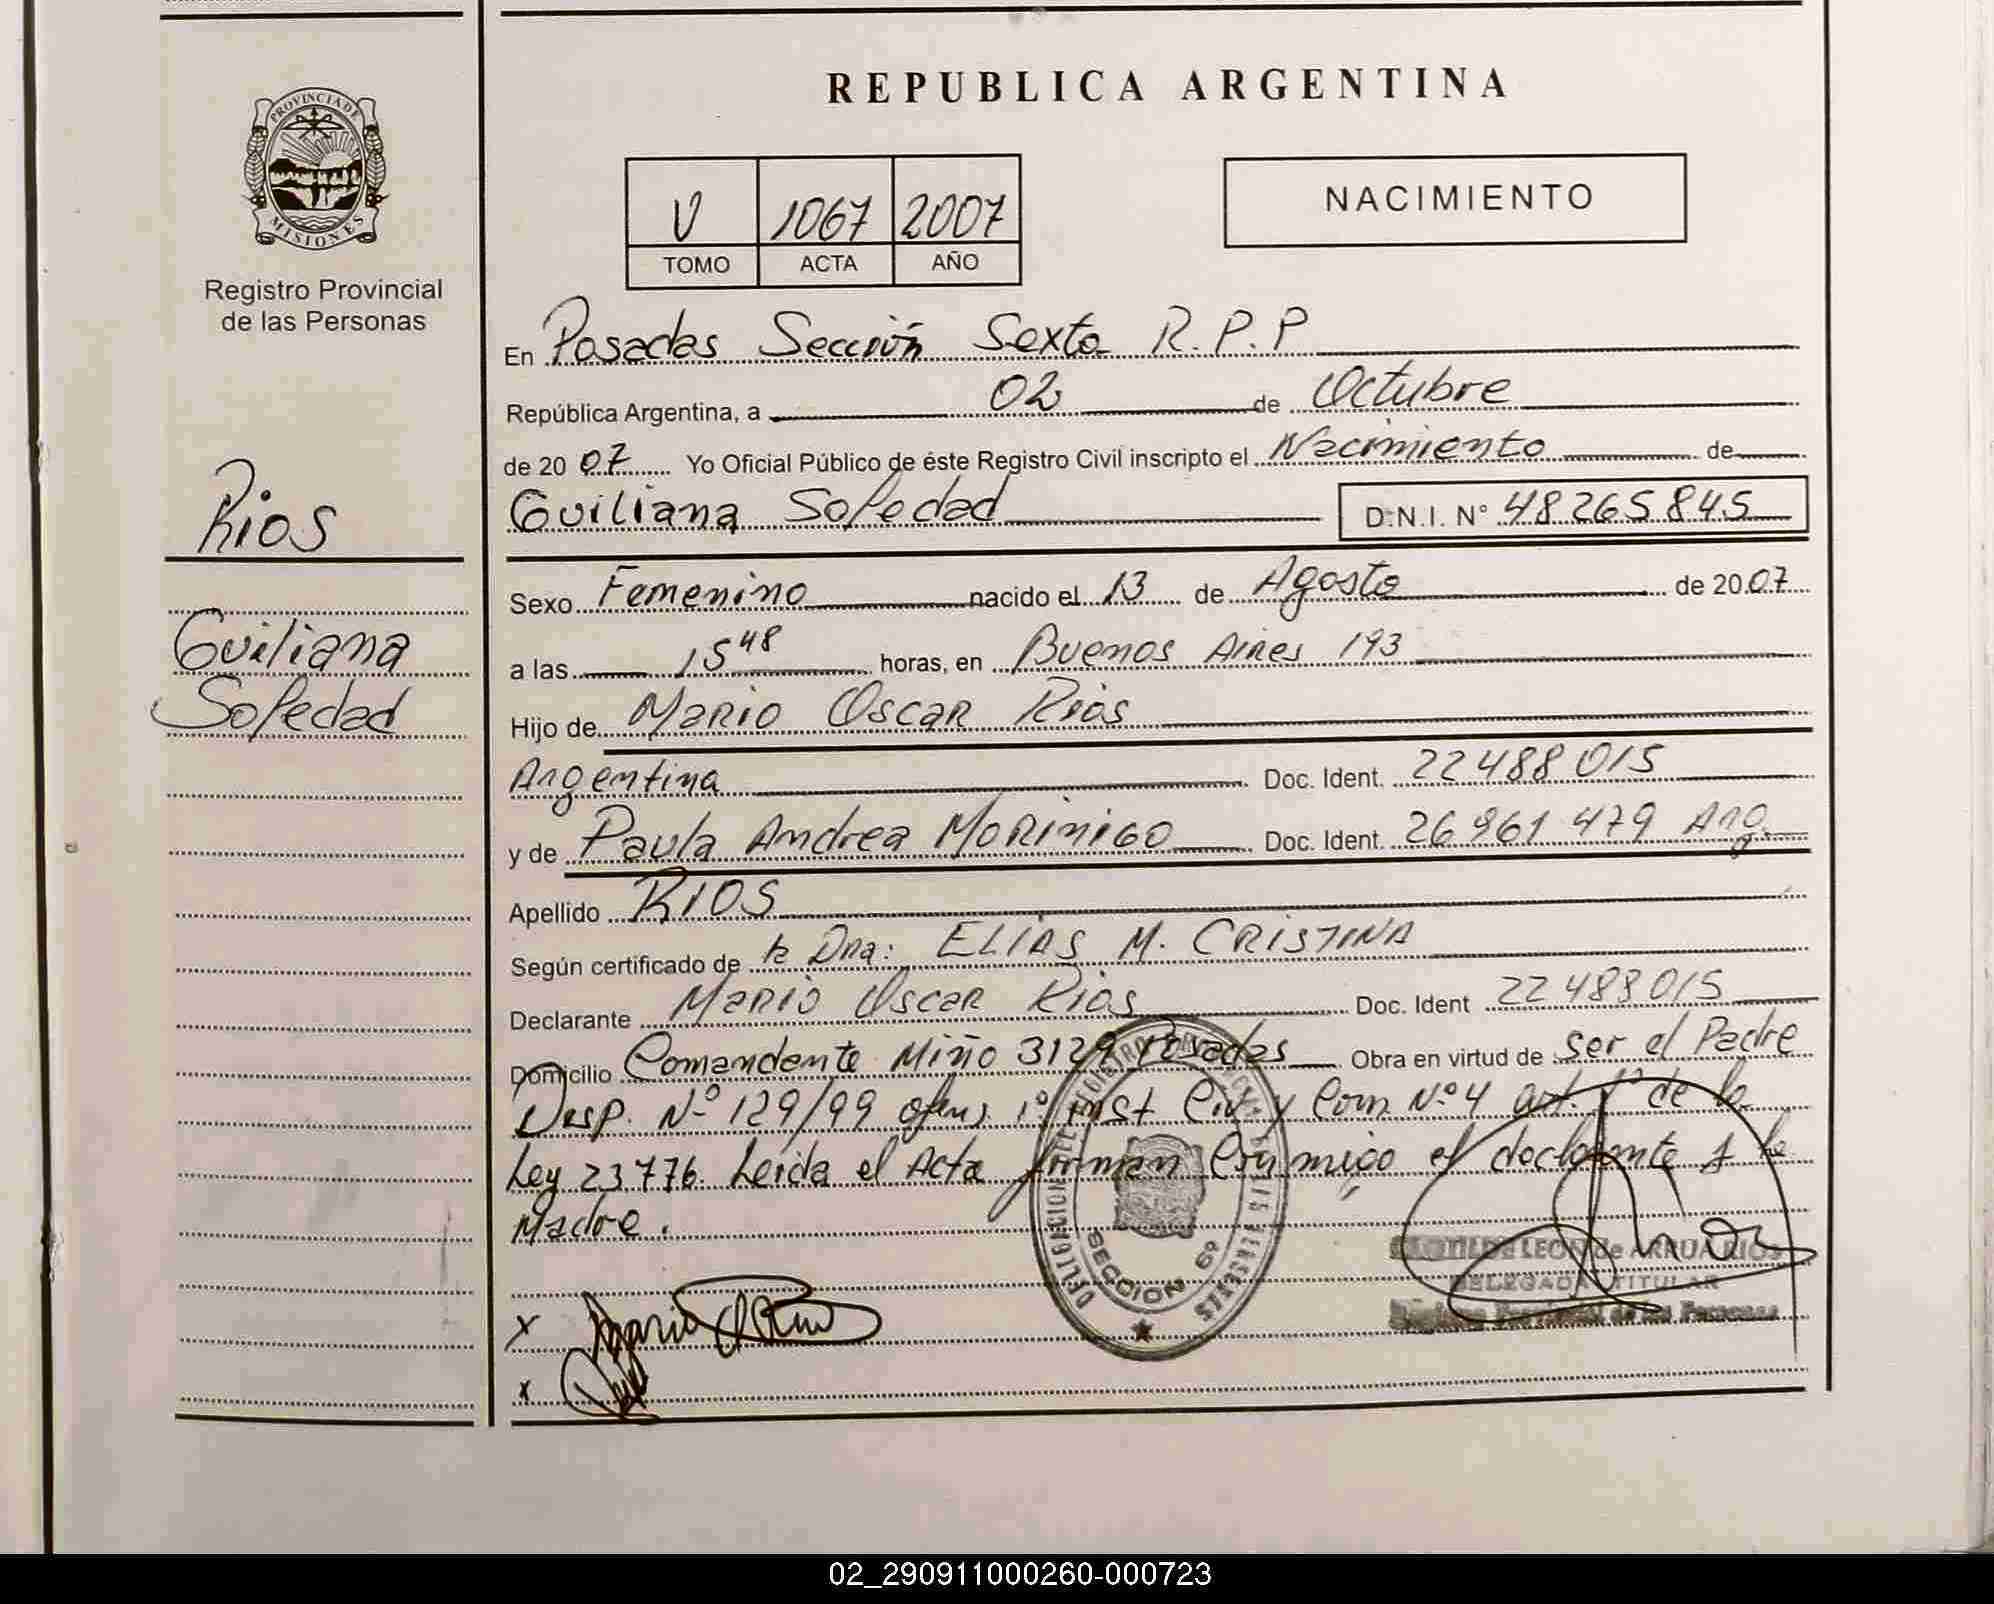 REPUBLICA ARGENTINA
PROVINCIA DE
MISIONES
Registro Provincial
de las Personas
V 1067 2007
TOMO ACTA AÑO
NACIMIENTO
Rios
Guiliana
Soledad
En Posadas Sección Sexta R.P.P
República Argentina, a 02 de Octubre
de 20 07 Yo Oficial Público de éste Registro Civil inscripto el Nacimiento de
Guiliana Soledad D.N.I. N° 48265845
Sexo Femenino nacido el 13 de Agosto de 20 07
a las 15 48 horas, en Buenos Aires 193
Hijo de Mario Oscar Rios
Argentina Doc. Ident. 22488015
y de Paula Andrea MORINIGO Doc. Ident. 26961479 Arg.
Apellido RIOS
Según certificado de la Dra: ELIAS M. CRISTINA
Declarante Mario Oscar Rios Doc. Ident 22488015
Domicilio Comandante Miño 3129 Posadas Obra en virtud de ser el Padre
Disp. N° 129/99 1° inst Civ y Com N° 4 art. 1° de la
Ley 23776. Leida el Acta firman conmigo el declarante y la
Madre.
SECCION 6°
LEON de ARRUA RIOS
DELEGADA TITULAR
Registro Provincial de las Personas
X
x
02_290911000260-000723